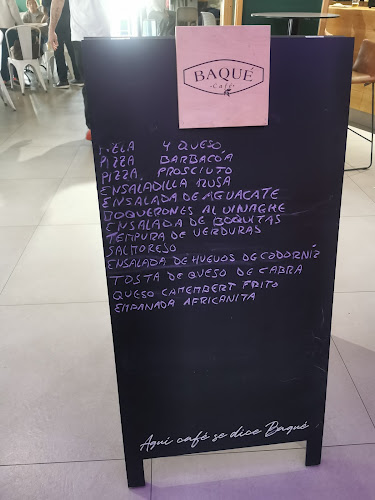 BAQUÉ
Café
PIZZA 4 QUESO
PIZZA BARBACÓA
PIZZA. PROSCIUTO
ENSALADILLA RUSA
ENSALADA DE AGUACATE
BOQUERONES AL VINAGRE
ENSALADA DE BOQUITAS
TEMPURA DE VERDURAS
SALMOREJO
ENSALADA DE HUEVOS DE CODORNIZ
TOSTA DE QUESO DE CABRA
QUESO CAMEMBERT FRITO
EMPANADA AFRICANITA
Aquí café se dice Baqué